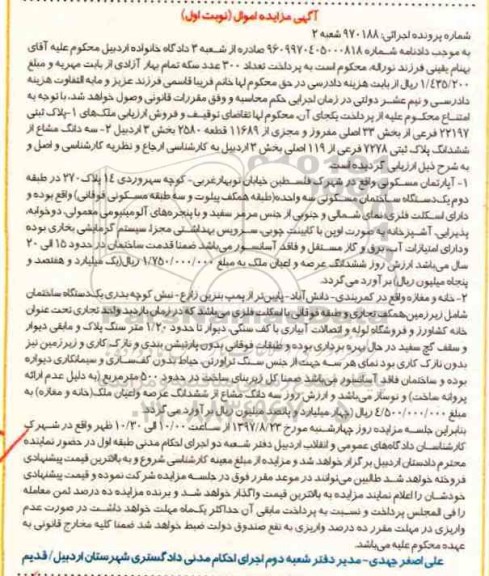 آگهی مزایده اموال (نوبت اول)
شماره پرونده اجرائی: ۹۷۰۱۸۸ شعبه ۲
به موجب دادنامه شماره ۹۶۰۹۹۷۰۴۰۵۰۰۰۸۱۸ صادره از شعبه ۳ دادگاه خانواده اردبیل محکوم علیه آقای
بهنام یقینی فرزند نوراله، محکوم است به پرداخت تعداد ۳۰۰ عدد سکه تمام بهار آزادی از بابت مهریه و مبلغ
۱/۴۳۵/۲۰۰ ریال از بابت هزینه دادرسی در حق محکوم لها خانم فریبا قاسمی فرزند عزیز و مابه التفاوت هزینه
دادرسی و نیم عشر دولتی در زمان اجرایی حکم محاسبه و وفق مقررات قانونی وصول خواهد شد، با توجه به
امتناع محکوم علیه از پرداخت یکجای آن، محکوم لها تقاضای توقیف و فروش ارزیابی ملک‌های ۱-پلاک ثبتی
۲۲۱۹۷ فرعی از بخش ۳۳ اصلی مفروز و مجزی از ۱۱۶۸۹ قطعه ۲۵۸۰ بخش ۳ اردبیل ۲- سه دانگ مشاع از
ششدانگ پلاک ثبتی ۷۲۷۸ فرعی از ۱۱۹ اصلی بخش ۳ اردبیل به کارشناسی ارجاع و نظریه کارشناسی و اصل و
به شرح ذیل ارزیابی گردیده است
۱- آپارتمان مسکونی واقع در شهرک فلسطین خیابان نوبهار غربی- کوچه سهروردی ۱۴ پلاک ۲۷۰ در طبقه
دوم یک دستگاه ساختمان مسکونی سه واحده (طبقه همکف پیلوت و سه طبقه مسکونی فوقانی) واقع بوده و
دارای اسکلت فلزی نمای شمالی و جنوبی از جنس مرمر سفید و با پنجره‌های آلومینیومی معمولی، دوخوابه،
پذیرایی، آشپزخانه بصورت اوپن با کابینت چوبی، سرویس بهداشتی مجزا، سیستم گرمایشی بخاری بوده
ودارای امتیازات آب، برق و گاز مستقل و فاقد آسانسور می‌باشد ضمنا قدمت ساختمان در حدود ۱۵ الی ۲۰
سال می‌باشد ارزش روز ششدانگ عرصه و اعیان ملک به مبلغ ۱/۷۵۰/۰۰۰/۰۰۰ ریال(یک میلیارد و هفتصد و
پنجاه میلیون ریال) بر آورد می گردد.
۲- خانه و مغازه واقع در کمربندی- دانش آباد- پایین‌تر از پمپ بنزین زارع- نبش کوچه بدری یک دستگاه ساختمان
شامل زیرزمین همکف تجاری و طبقه فوقانی با اسکلت فلزی می‌باشد که در زمان بازدید واحد تجاری تحت عنوان
خانه کشاورز و فروشگاه لوله و اتصالات آبیاری با کف سنگی، دیوار تا حدود ۱/۲۰ متر سنگ پلاک و مابقی دیوار
و سقف گچ سفید در حال بهره برداری بوده و طبقات فوقانی بدون پارتیشن بندی و نازک کاری و زیرزمین نیز
بدون نازک کاری بود نمای هر سه جهت از جنس سنگ تراورتن، حیاط بدون کف سازی و سیمانکاری دیواره
بوده و ساختمان فاقد آسانسور می‌باشد ضمنا کل زیربنای ساخت در حدود ۵۰۰ مترمربع (به دلیل عدم ارائه
پروانه ساخت) و نوساز می‌باشد و ارزش روز سه دانگ مشاع از ششدانگ عرصه واعیان ملک(خانه و مغازه) به
مبلغ ۴/۵۰۰/۰۰۰/۰۰۰ ریال (چهار میلیارد و پانصد میلیون ریال بر آورد می گردد.
بنابراین جلسه مزایده روز چهارشنبه مورخ ۱۳۹۷/۸/۲۳ از ساعت ۱۰/۰۰ الی ۱۰/۳۰ ظهر واقع در شهرک
کارشناسان دادگاه‌های عمومی و انقلاب اردبیل دفتر شعبه دو اجرای احکام مدنی طبقه اول در حضور نماینده
محترم دادستان اردبیل برگزار خواهد شد و مزایده از مبلغ معینه کارشناسی شروع و به بالاترین قیمت پیشنهادی
فروخته خواهد شد طالبین می‌توانند در موعد مقرر فوق در جلسه مزایده شرکت نموده و قیمت پیشنهادی
خودشان را اعلام نمایند مزایده به بالاترین قیمت واگذار خواهد شد و برنده مزایده ده درصد ثمن معامله
را فی المجلس پرداخت و نسبت به پرداخت مابقی آن حداکثر یک‌ماه مهلت خواهد داشت در صورت عدم
واریزی در مهلت مقرر ده درصد واریزی به نفع صندوق دولت ضبط خواهد شد ضمنا کلیه مخارج قانونی به
عهده محکوم علیه می‌باشد.
علی اصغر جهدی- مدیر دفتر شعبه دوم اجرای احکام مدنی دادگستری شهرستان اردبیل/ قدیم